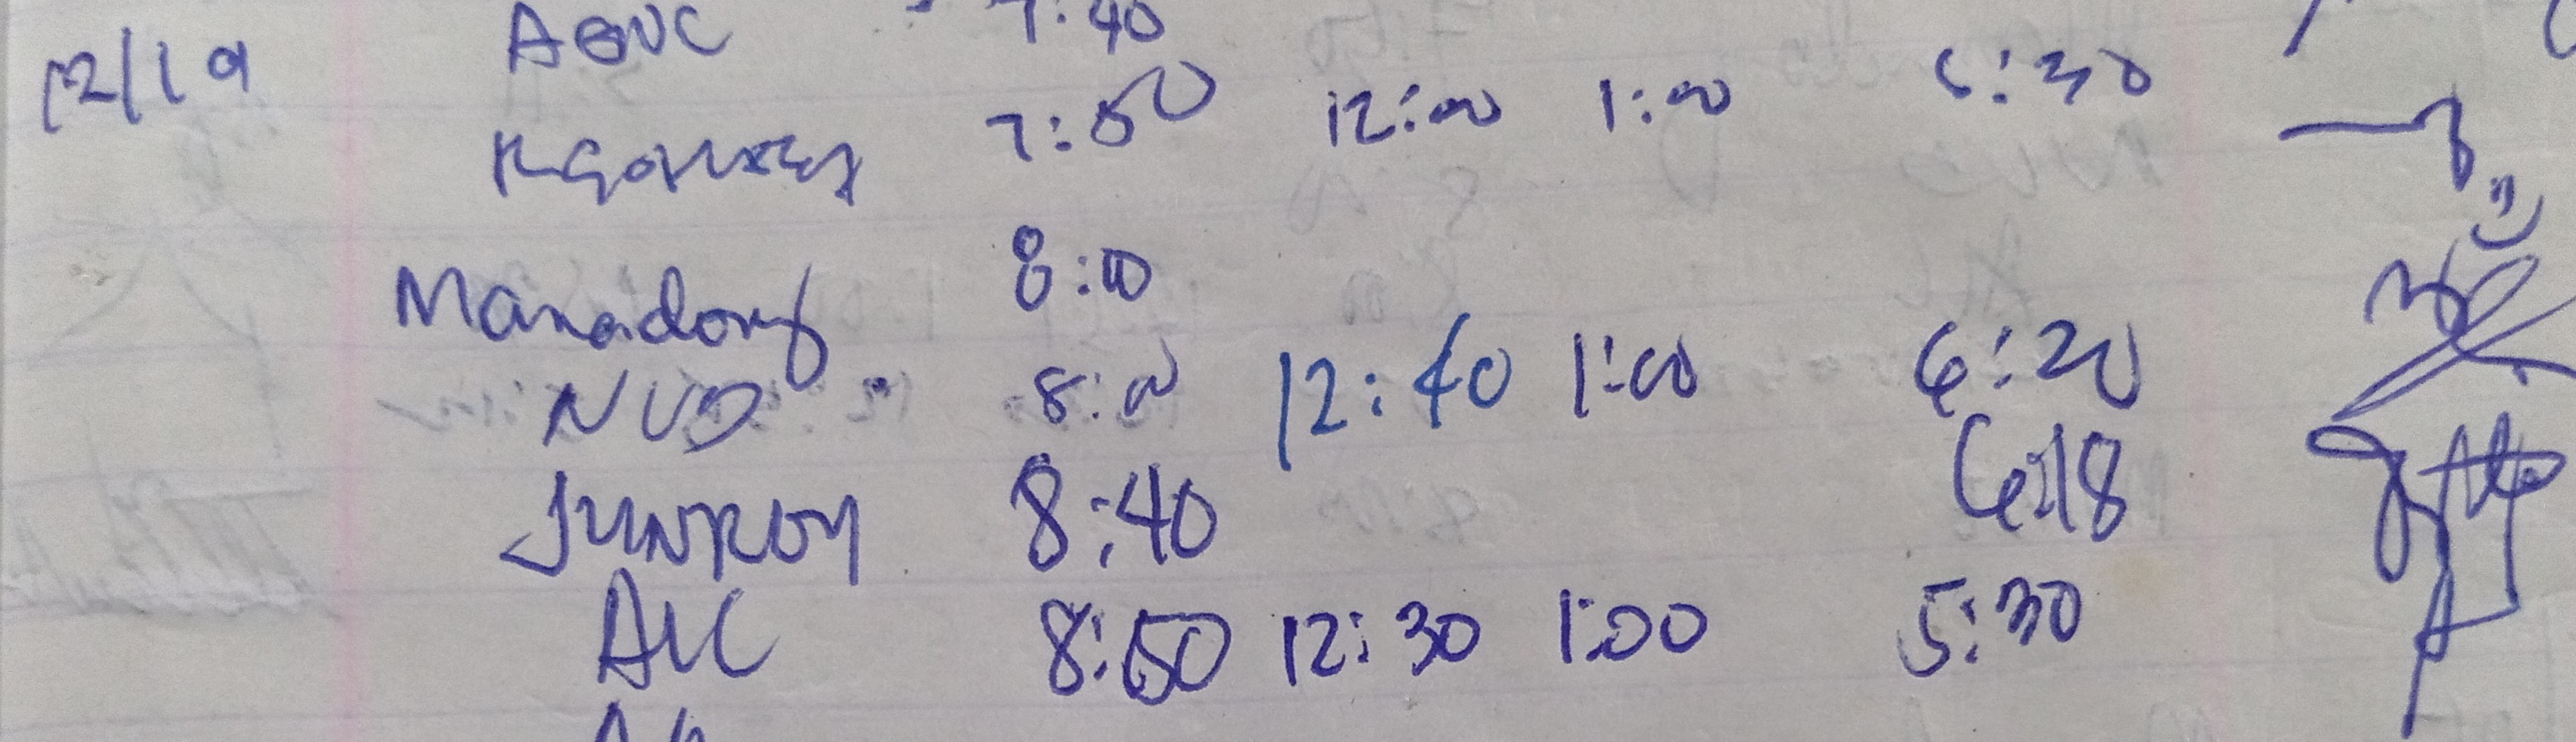 12/19 7:40
7:50 12:00 1:00 6:30
Manadong 8:00
NVD 8:00 12:40 1:00 6:20
JUNROY 8:40 6:18
AUC 8:50 12:30 1:00 5:30